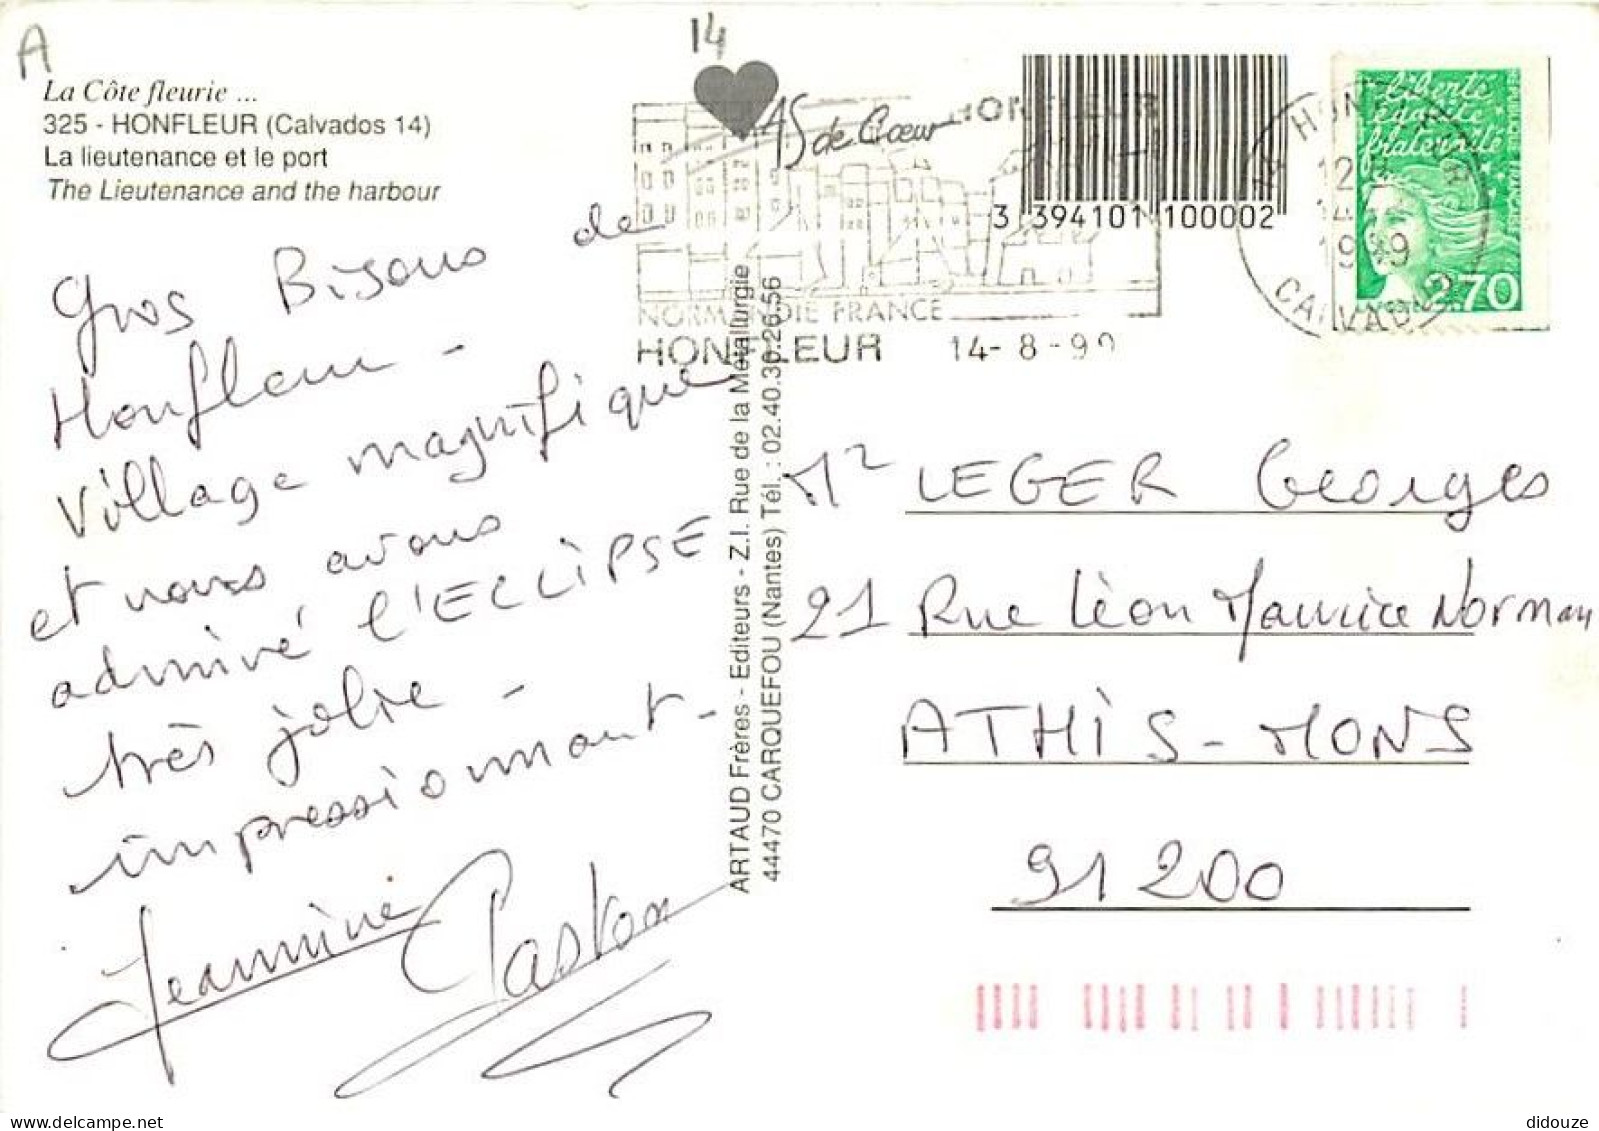 A
14
La Côte fleurie ...
325 - HONFLEUR (Calvados 14)
La lieutenance et le port
The Lieutenance and the harbour
AS de Cœur
HONFLEUR
NORMANDIE FRANCE
HONFLEUR 14-8-99
3 394101 100002
14 HONFLEUR
12
14
1999
CALVADOS
Liberté
égalité
fraternité
2,70
LA POSTE
RF
Gros Bisous de
Honfleur -
Village magnifique
et nous avons
admiré l'ECLIPSE
très jolie -
impressionnant -
Jeannine Gaston
ARTAUD Frères - Editeurs - Z.I. Rue de la Métallurgie
44470 CARQUEFOU (Nantes) Tél. : 02.40.30.26.56
Mr LEGER Georges
21 Rue Léon Maurice Norman
ATHIS-MONS
91200
didouze